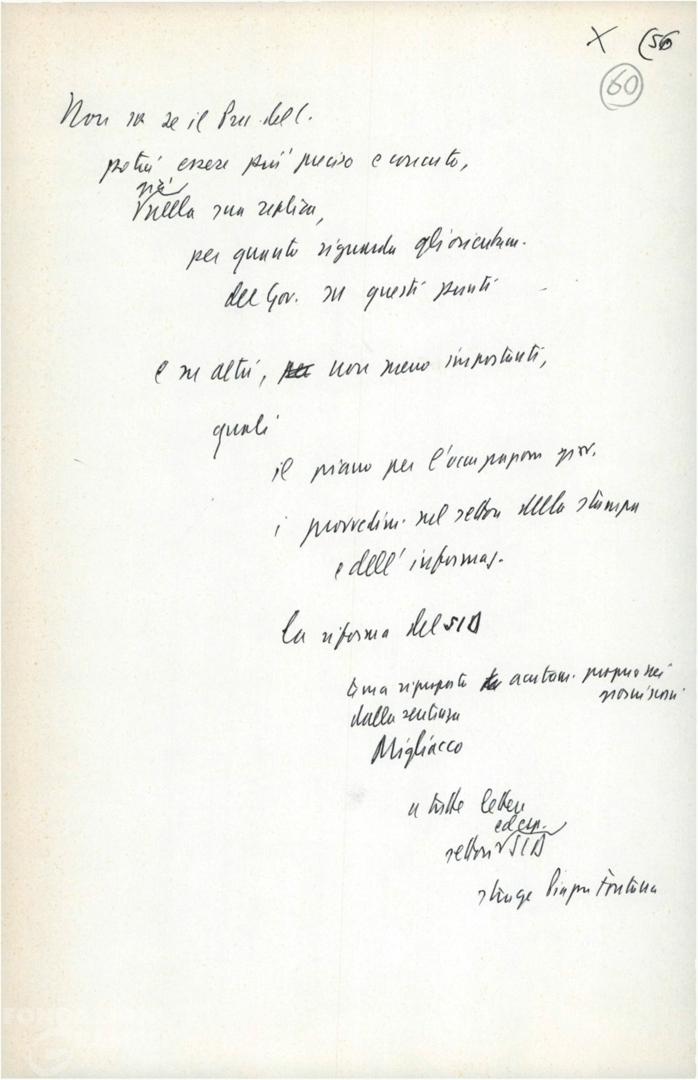 X (56
60
Non so se il Pres. del C.
potrà essere più preciso e concreto,
già
nella sua replica,
per quanto riguarda gli orientam.
del Gov. su questi punti
e su altri, non meno importanti,
quali
il piano per l'occupazion giov.
i provvedim. nel settore della stampa
e dell'informaz.
la riforma del SID
tema riproposto acutam. proprio nei
giorni scorsi
dalla sentenza
Migliacco
a tutte lettere
ed esp.
settori SID
strage Piazza Fontana